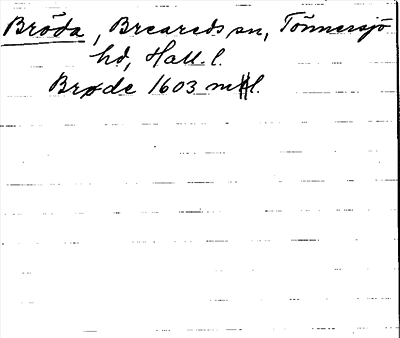 Bröda, Breareds sn, Tönnersjö
hd, Hall. l.
Brøde 1603 mHl.